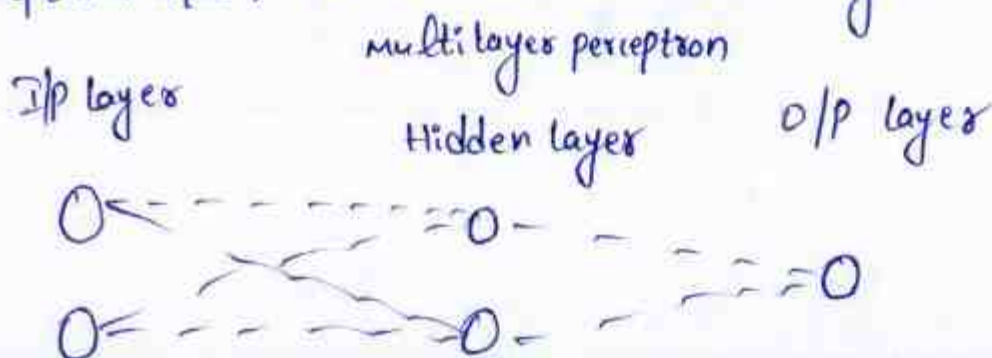 multilayer perceptron
I/p layer
Hidden layer
O/P layer